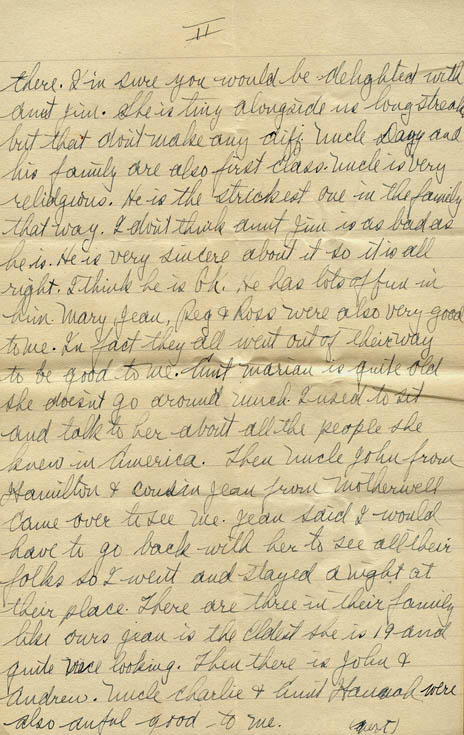 II
there. I'm sure you would be delighted with
aunt Jim. She is tiny alongside us long streaks
but that don't make any diff. Uncle Davy and
his family are also first class. Uncle is very
relidgious. He is the strickest one in the family
that way. I don't think aunt Jim is as bad as
he is. He is very sincere about it so it is all
right. I think he is Ok. He has lots of fun in
him. Mary, Jean, Reg & Ross were also very good
to me. In fact they all went out of their way
to be good to me. Aunt Marian is quite old
she doesn't go around much. I used to sit
and talk to her about all the people she
knew in America. Then Uncle John from
Hamilton & cousin Jean from Motherwell
came over to see me. Jean said I would
have to go back with her to see all their
folks so I went and stayed a night at
their place. There are three in their family
like ours Jean is the eldest she is 19 and
quite nice looking. Then there is John &
Andrew. Uncle Charlie & Aunt Hannah were
also awful good to me. (next)